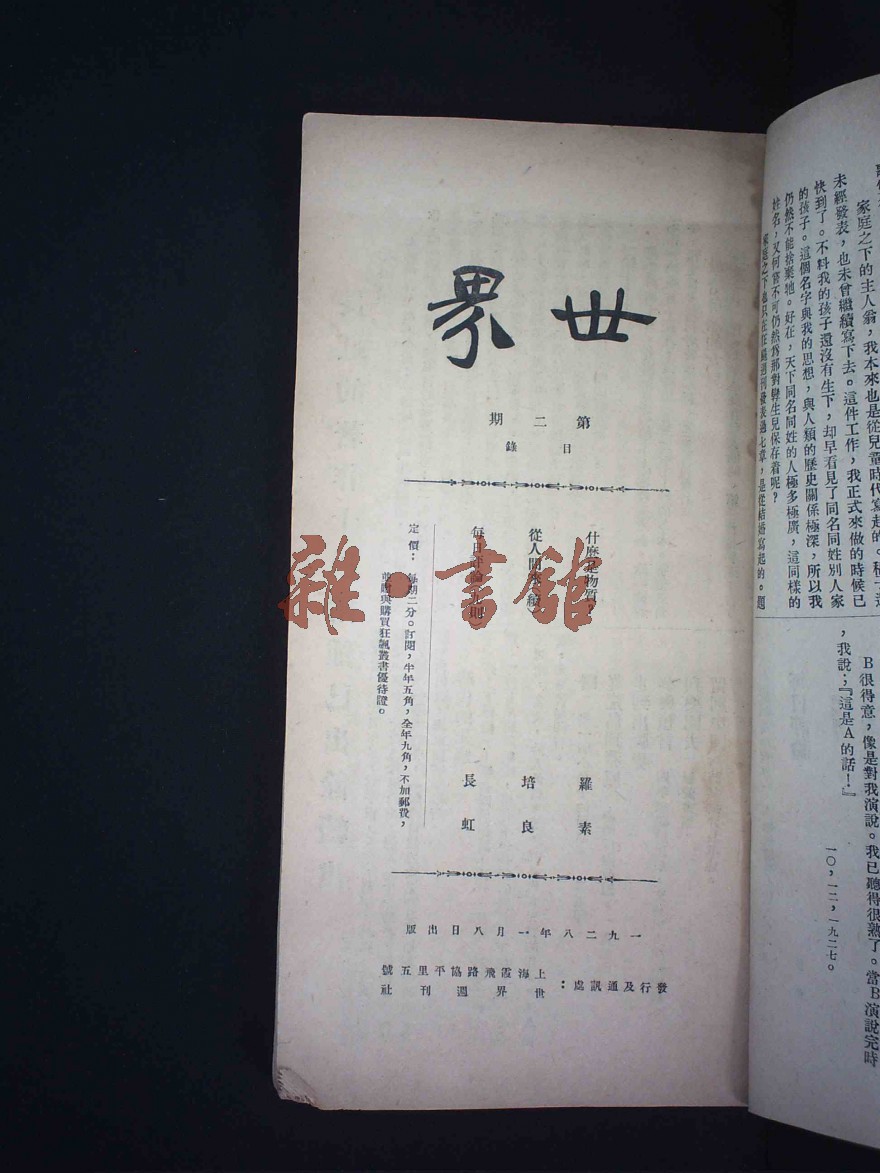 家庭之下的主人翁，我本來也是從兒童時代寫起的。
未經發表，也未曾繼續寫下去。這件工作，我正式來做的時候已
快到了。不料我的孩子還沒有生下，却早看見了同名同姓別人家
的孩子。這個名字與我的思想，與人類的歷史關係極深，所以我
仍然不能捨棄牠。好在，天下同名同姓的人極多極廣，這同樣的
姓名，又何嘗不可仍然爲那對孿生兒保存着呢？
家庭之下也只在狂飆週刊發表過七章，是從結婚寫起的。題
B很得意，像是對我演說。我已聽得很熟了。當B演說完時
，我說；『這是A的話！』
一〇，一二，一九二七。
世界
第二期
目錄
什麼是物質？ 羅素
從人間來（續） 培良
每日評論 則） 長虹
定價：每期二分。訂閱，半年五角，全年九角，不加郵費，
並贈與購買狂飆叢書優待證。
一九二八年一月八日出版
發行及通訊處：
上海霞飛路協平里五號
世界週刊社
雜·書館